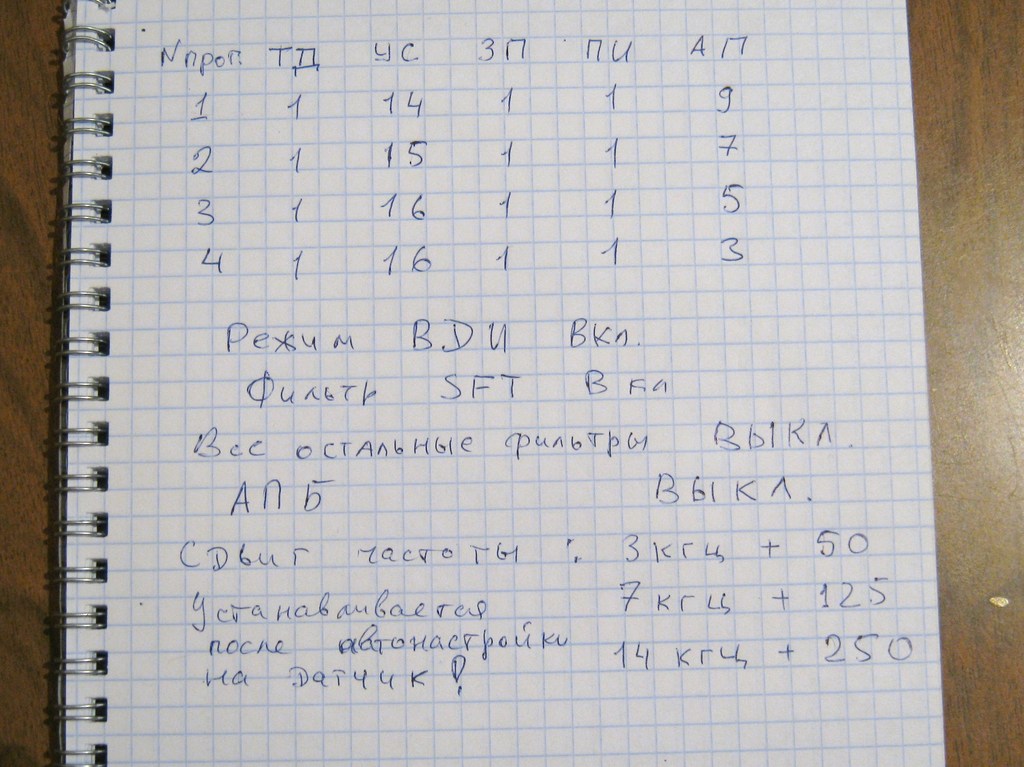 Nпроп. ТД УС ЗП ПИ АП
1 1 14 1 1 9
2 1 15 1 1 7
3 1 16 1 1 5
4 1 16 1 1 3
Режим ВДИ Вкл.
Фильтр SFT Вкл
Все остальные фильтры ВЫКЛ.
АПБ ВЫКЛ.
Сдвиг частоты : 3 кгц + 50
Устанавливается 7 кгц + 125
после автонастройки 14 кгц + 250
на датчик !